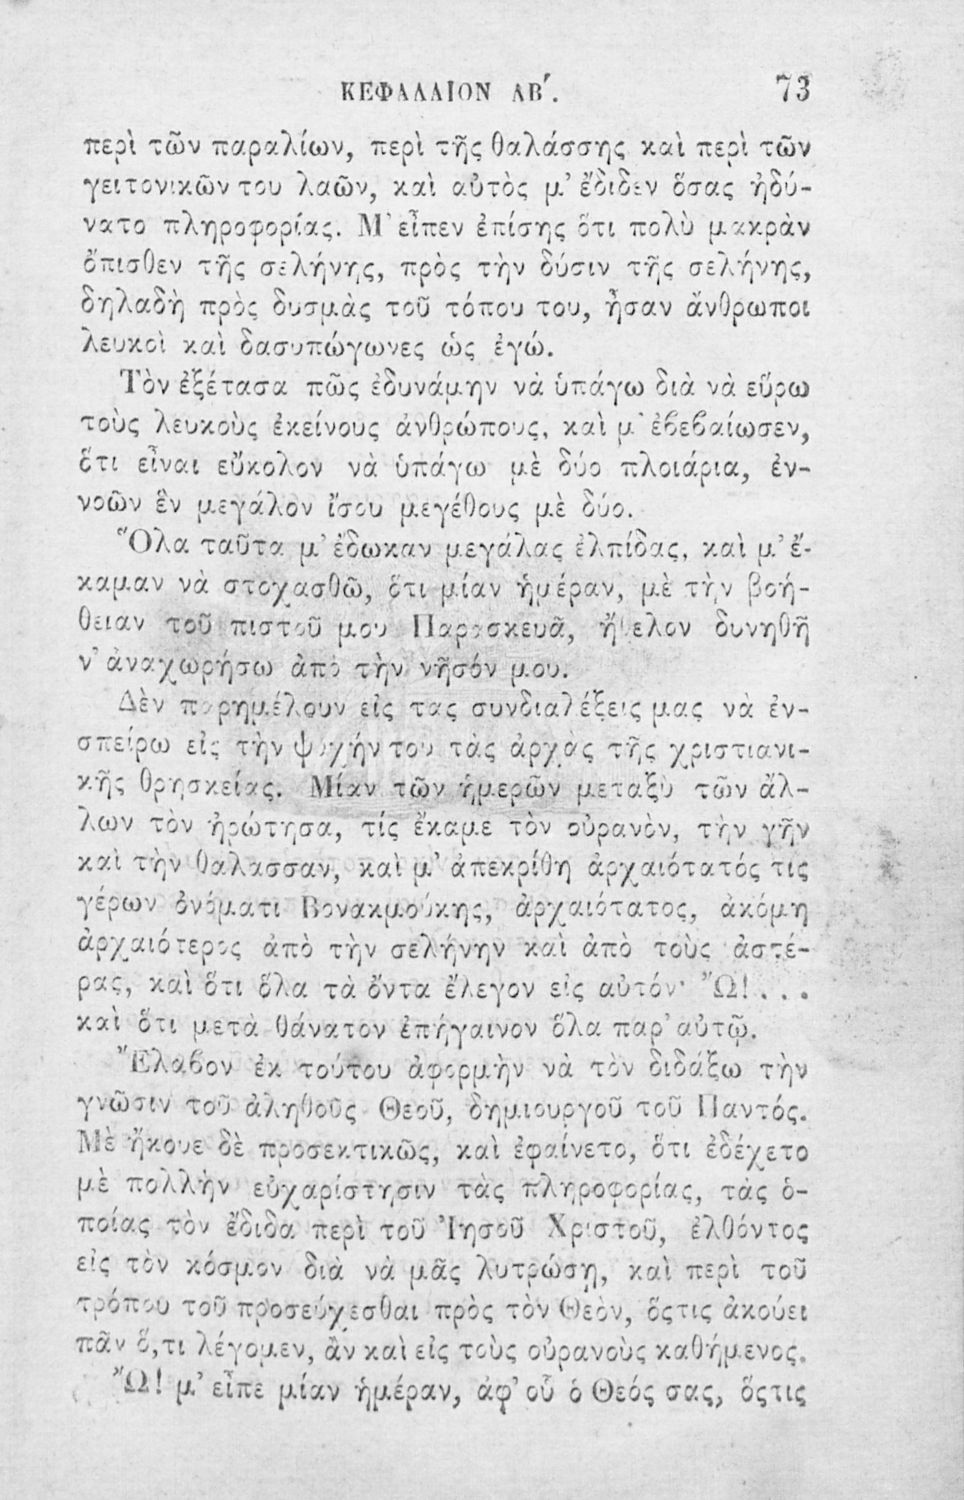 ΚΕΦΑΛΑΙΟΝ ΛΒ΄. 73
περὶ τῶν παραλίων, περὶ τῆς θαλάσσης καὶ περὶ τῶν
γειτονικῶν του λαῶν, καὶ αὐτὸς μ’ ἔδιδεν ὅσας ἠδύ-
νατο πληροφορίας. Μ’ εἶπεν ἐπίσης ὅτι πολὺ μακρὰν
ὄπισθεν τῆς σελήνης, πρὸς τὴν δύσιν τῆς σελήνης,
δηλαδὴ πρὸς δυσμὰς τοῦ τόπου του, ἦσαν ἄνθρωποι
λευκοὶ καὶ δασυπώγωνες ὡς ἐγώ.
Τὸν ἐξέτασα πῶς ἐδυνάμην νὰ ὑπάγω διὰ νὰ εὕρω
τοὺς λευκοὺς ἐκείνους ἀνθρώπους, καὶ μ’ ἐβεβαίωσεν,
ὅτι εἶναι εὔκολον νὰ ὑπάγω μὲ δύο πλοιάρια, ἐν-
νοῶν ἓν μεγάλον ἴσου μεγέθους μὲ δύο.
Ὅλα ταῦτα μ’ ἔδωκαν μεγάλας ἐλπίδας, καὶ μ’ ἔ-
καμαν νὰ στοχασθῶ, ὅτι μίαν ἡμέραν, μὲ τὴν βοή-
θειαν τοῦ πιστοῦ μου Παρασκευᾶ, ἤθελον δυνηθῆ
ν’ ἀναχωρήσω ἀπὸ τὴν νῆσόν μου.
Δὲν παρημέλουν εἰς τας συνδιαλέξεις μας νὰ ἐν-
σπείρω εἰς τὴν ψυχήν του τὰς ἀρχὰς τῆς χριστιανι-
κῆς θρησκείας. Μίαν τῶν ἡμερῶν μεταξὺ τῶν ἄλ-
λων τὸν ἠρώτησα, τίς ἔκαμε τὸν οὐρανὸν, τὴν γῆν
καὶ τὴν θαλασσαν, καὶ μ’ ἀπεκρίθη ἀρχαιότατός τις
γέρων ὀνόματι Βονακμούκης, ἀρχαιότατος, ἀκόμη
ἀρχαιότερος ἀπὸ τὴν σελήνην καὶ ἀπὸ τοὺς ἀστέ-
ρας, καὶ ὅτι ὅλα τὰ ὄντα ἔλεγον εἰς αὐτόν· Ὤ! . . .
καὶ ὅτι μετὰ θάνατον ἐπήγαινον ὅλα παρ’ αὐτῷ.
Ἔλαβον ἐκ τούτου ἀφορμὴν νὰ τὸν διδάξω τὴν
γνῶσιν τοῦ ἀληθοῦς Θεοῦ, δημιουργοῦ τοῦ Παντός.
Μὲ ἤκουε δὲ προσεκτικῶς, καὶ ἐφαίνετο, ὅτι ἐδέχετο
μὲ πολλὴν εὐχαρίστησιν τὰς πληροφορίας, τὰς ὁ-
ποίας τὸν ἔδιδα περὶ τοῦ Ἰησοῦ Χριστοῦ, ἐλθόντος
εἰς τὸν κόσμον διὰ νὰ μᾶς λυτρώσῃ, καὶ περὶ τοῦ
τρόπου τοῦ προσεύχεσθαι πρὸς τὸν Θεὸν, ὅςτις ἀκούει
πᾶν ὅ,τι λέγομεν, ἂν καὶ εἰς τοὺς οὐρανοὺς καθήμενος.
Ὤ! μ’ εἶπε μίαν ἡμέραν, ἀφ’ οὗ ὁ Θεός σας, ὅςτις